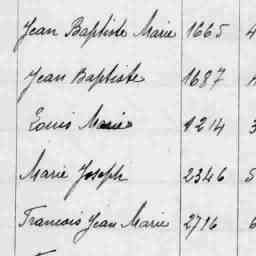 Jean Baptiste Marie 1665 4
Jean Baptiste 1687
Louis Marie 1214 3
Marie Joseph 2346 5
Francois Jean Marie 2716 6